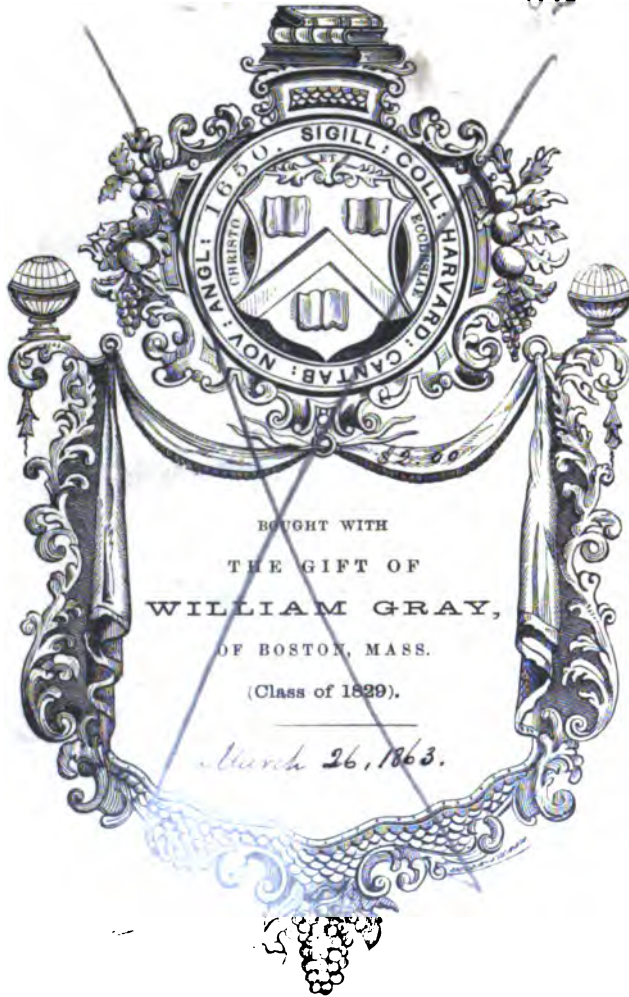 SIGILL: COLL: HARVARD: CANTAB: NOV: ANGL: 1650.
CHRISTO ET ECCLESIAE
$2.00
BOUGHT WITH
THE GIFT OF
WILLIAM GRAY,
OF BOSTON, MASS.
(Class of 1829).
March 26, 1863.